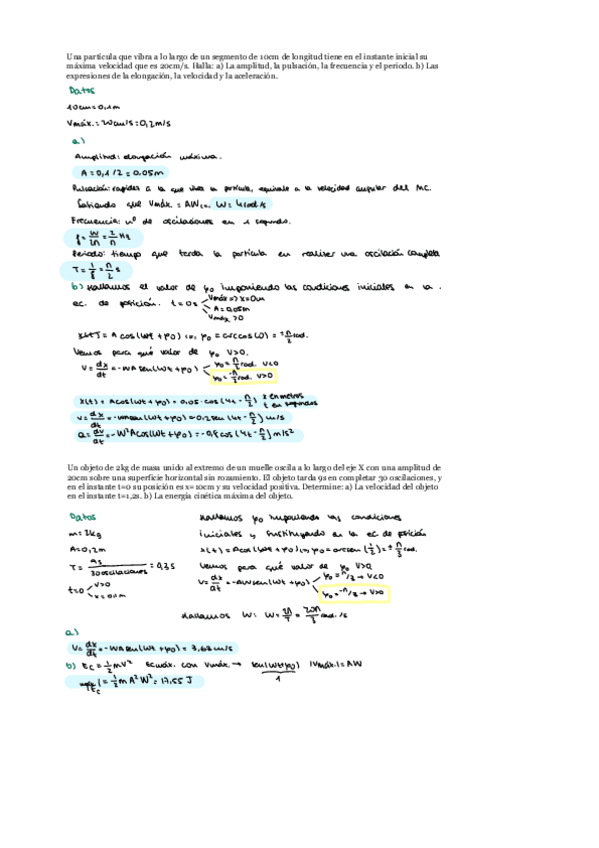 Una partícula que vibra a lo largo de un segmento de 10cm de longitud tiene en el instante inicial su
máxima velocidad que es 20cm/s. Halla: a) La amplitud, la pulsación, la frecuencia y el periodo. b) Las
expresiones de la elongación, la velocidad y la aceleración.
Datos
10cm=0,1m
Vmáx.=20cm/s=0,2m/s
a)
Amplitud: elongación máxima.
A=0,1/2=0.05m
Pulsación: rapidez a la que vibra la partícula, equivale a la velocidad angular del MC.
Sabiendo que Vmáx.=AW W=4rad/s
Frecuencia: nº de oscilaciones en 1 segundo.
f=W/2π=2/π Hz
Periodo: tiempo que tarda la partícula en realizar una oscilación completa
T=1/f=π/2 s
b) Hallamos el valor de φ0 imponiendo las condiciones iniciales en la
ec. de posición. t=0s Vmáx=>x=0m
A=0,05m
Vmáx>0
x(t)=A cos(Wt+φ0) φ0=arccos(0)=±π/2 rad.
Vemos para qué valor de φ0 V>0.
V=dx/dt=-WAsen(Wt+φ0) φ0=π/2 rad. V<0
φ0=-π/2 rad. V>0
x(t)=Acos(Wt+φ0)=0,05·cos(4t-π/2) x en metros
t en segundos
V=dx/dt=-WAsen(Wt+φ0)=-0,2sen(4t-π/2) m/s
a=dv/dt=-W²Acos(Wt+φ0)=-0,8cos(4t-π/2) m/s²
Un objeto de 2kg de masa unido al extremo de un muelle oscila a lo largo del eje X con una amplitud de
20cm sobre una superficie horizontal sin rozamiento. El objeto tarda 9s en completar 30 oscilaciones, y
en el instante t=0 su posición es x=10cm y su velocidad positiva. Determine: a) La velocidad del objeto
en el instante t=1,2s. b) La energía cinética máxima del objeto.
Datos
m=2kg
A=0,2m
T=9s/30oscilaciones=0,3s
t=0 V>0
x=0,1m
Hallamos φ0 imponiendo las condiciones
iniciales y sustituyendo en la ec de posición
x(t)=Acos(Wt+φ0) φ0=arcsen(1/2)=±π/3 rad.
Vemos para qué valor de φ0 V>0
V=dx/dt=-AWsen(Wt+φ0) φ0=π/3→V<0
φ0=-π/3→V>0
Hallamos W: W=2π/T=20π/3 rad./s
a)
V=dx/dt=-WAsen(Wt+φ0)=3,63m/s
b) Ec=1/2mV² Ecmáx. con Vmáx→ sen(Wt+φ0) |Vmáx.|=AW
1
=1/2mA²W²=17,55 J